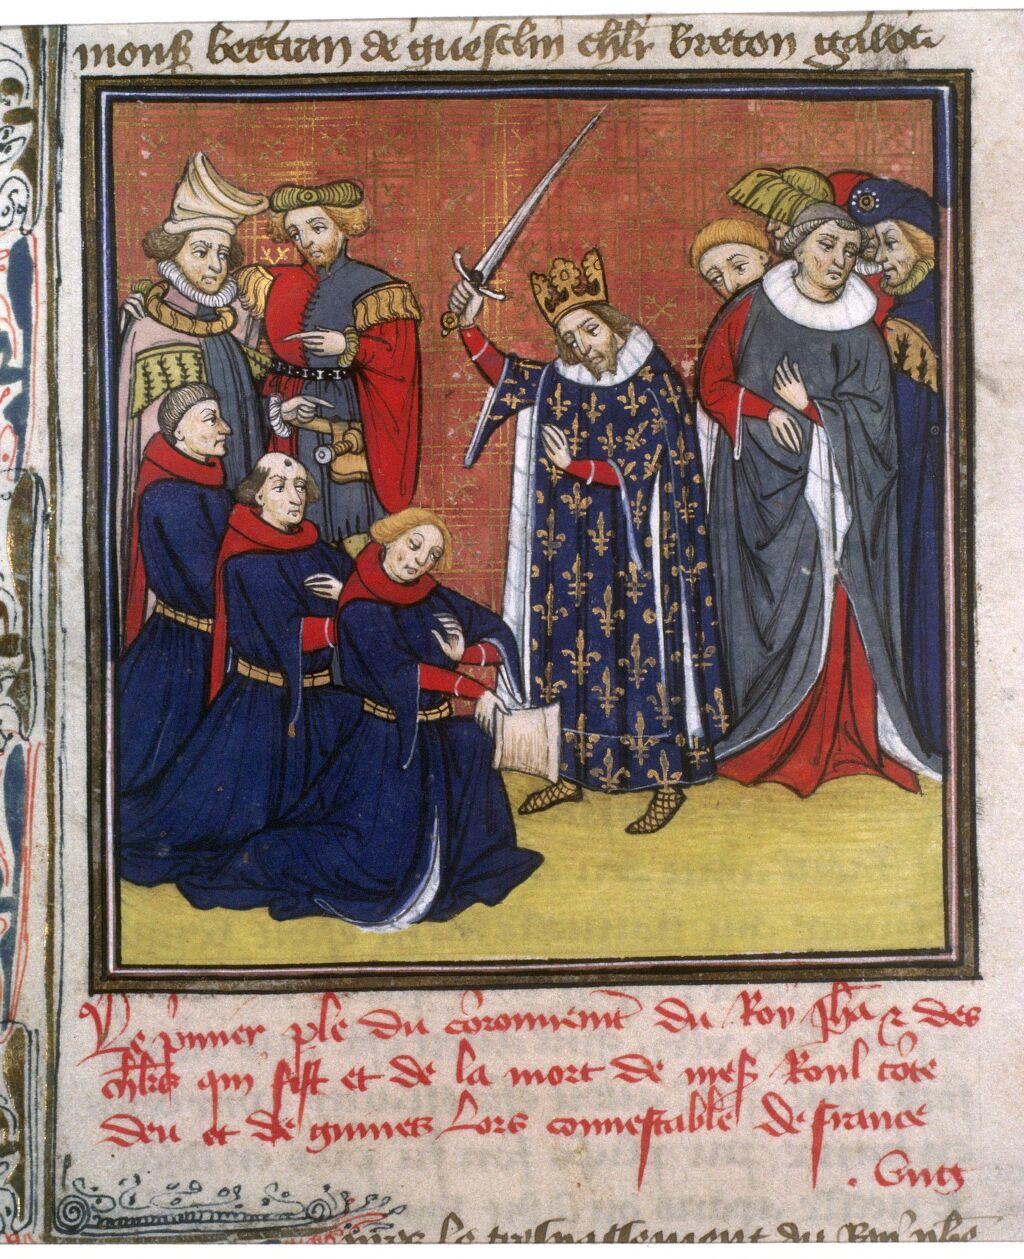 monsr bertran de guesclin chlr breton
Le pmier ple du coronement du Roy Jhan et des
chlrs qui fist et de la mort de mess Raoul côte
deu et de guines lors connestable de france
le trespassement du Roy phle